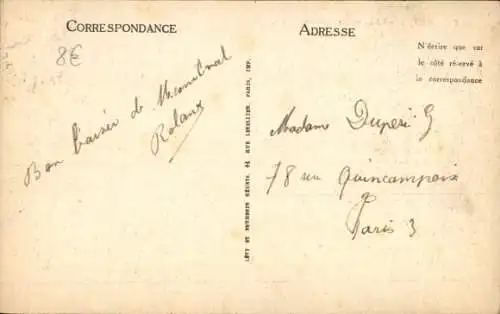 CORRESPONDANCE
ADRESSE
8€
N'écrire que sur
le côté réservé à
la correspondance
Bon baiser de
Roland
LÉVY ET NEURDEIN RÉUNIS, 44, RUE LETELLIER, PARIS, IMP.
Madame Duperi G
78 rue Quincampoix
Paris 3